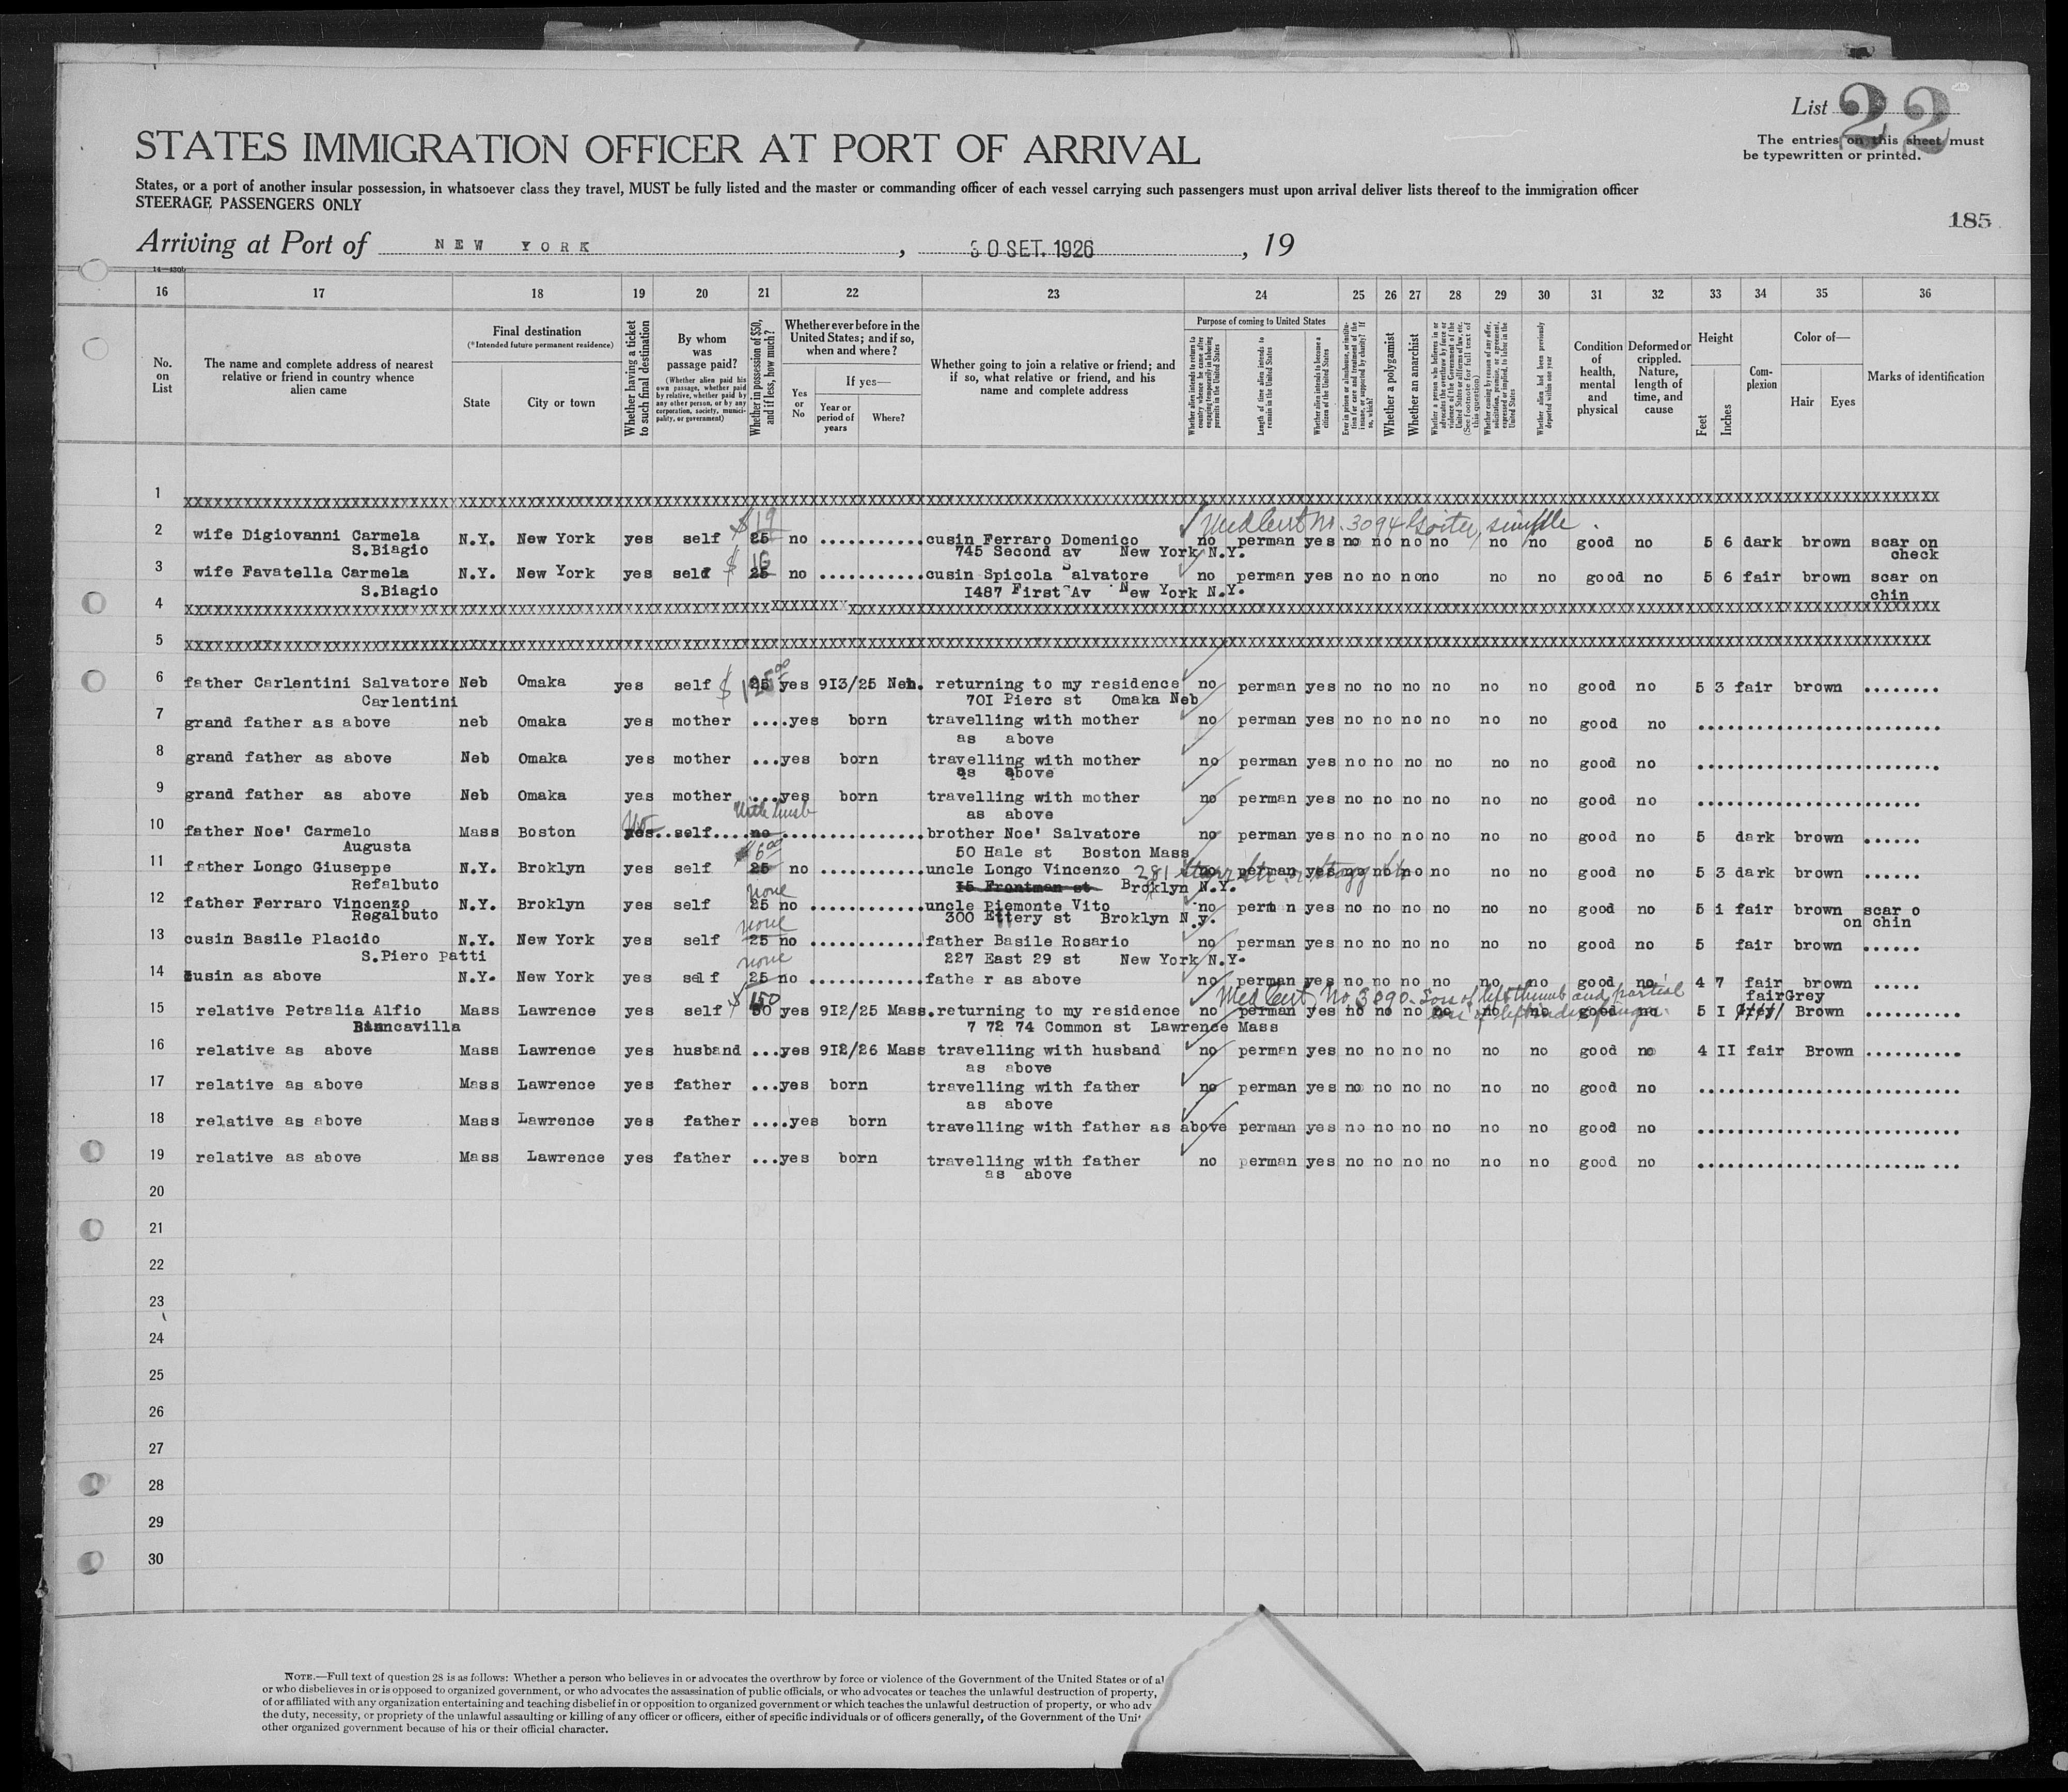 List 22
The entries on this sheet must
be typewritten or printed.
STATES IMMIGRATION OFFICER AT PORT OF ARRIVAL
States, or a port of another insular possession, in whatsoever class they travel, MUST be fully listed and the master or commanding officer of each vessel carrying such passengers must upon arrival deliver lists thereof to the immigration officer
STEERAGE PASSENGERS ONLY
185
Arriving at Port of NEW YORK, 30 SET. 1926, 19
16 17 18 19 20 21 22 23 24 25 26 27 28 29 30 31 32 33 34 35 36
No. on List
The name and complete address of nearest relative or friend in country whence alien came
Final destination
(*Intended future permanent residence)
State
City or town
Whether having a ticket to such final destination
By whom was passage paid?
(Whether alien paid his own passage, whether paid by relative, whether paid by any other person, or by any corporation, society, municipality, or government)
Whether in possession of $50, and if less, how much?
Whether ever before in the United States; and if so, when and where?
Yes or No
If yes—
Year or period of years
Where?
Whether going to join a relative or friend; and if so, what relative or friend, and his name and complete address
Purpose of coming to United States
Whether alien intends to return to country whence he came after engaging temporarily in laboring pursuits in the United States
Length of time alien intends to remain in the United States
Whether alien intends to become a citizen of the United States
Ever in prison or almshouse, or institution for care and treatment of the insane, or supported by charity? If so, which?
Whether a polygamist
Whether an anarchist
Whether a person who believes in or advocates the overthrow by force or violence of the Government of the United States or all forms of law, etc. (See footnote for full text of this question)
Whether coming by reason of any offer, solicitation, promise, or agreement, expressed or implied, to labor in the United States
Whether alien had been previously deported within one year
Condition of health, mental and physical
Deformed or crippled. Nature, length of time, and cause
Height
Feet
Inches
Complexion
Color of—
Hair
Eyes
Marks of identification
1 xxxxxxxxxxxxxxxxxxxxxxxxxxxxxxxxxxxxxxxx
$19 Med Cert No. 3094 Goiter, simple.
2 wife Digiovanni Carmela N.Y. New York yes self 25 no ........... cusin Ferraro Domenico no perman yes no no no no no no good no 5 6 dark brown scar on
S.Biagio 745 Second av New York N.Y. check
$16
3 wife Favatella Carmela N.Y. New York yes self 25 no ........... cusin Spicola Salvatore no perman yes no no no no no no good no 5 6 fair brown scar on
S.Biagio 1487 First Av New York N.Y. chin
4 xxxxxxxxxxxxxxxxxxxxxxxxxxxxxxxxxxxxxxxx
5 xxxxxxxxxxxxxxxxxxxxxxxxxxxxxxxxxxxxxxxx
6 father Carlentini Salvatore Neb Omaka yes self 25 yes 913/25 Neb. returning to my residence no perman yes no no no no no no good no 5 3 fair brown ........
Carlentini 701 Pierc st Omaka Neb
7 grand father as above neb Omaka yes mother ....yes born travelling with mother no perman yes no no no no no no good no ........
as above
8 grand father as above Neb Omaka yes mother ...yes born travelling with mother no perman yes no no no no no no good no ........
as above
9 grand father as above Neb Omaka yes mother ....yes born travelling with mother no perman yes no no no no no no good no ........
as above
No With husb
10 father Noe' Carmelo Mass Boston yes..self....no ............... brother Noe' Salvatore no perman yes no no no no no no good no 5 dark brown ......
Augusta 50 Hale st Boston Mass
$6.00
11 father Longo Giuseppe N.Y. Broklyn yes self 25 no ........... uncle Longo Vincenzo 281 no perman yes no no no no no no good no 5 3 dark brown ......
Refalbuto 15 Frontman st Broklyn N.Y.
none
12 father Ferraro Vincenzo N.Y. Broklyn yes self 25 no ............ uncle Piemonte Vito no perman yes no no no no no no good no 5 1 fair brown scar o
Regalbuto 300 Ettery st Broklyn N.y. on chin
none
13 cusin Basile Placido N.Y. New York yes self 25 no ............ father Basile Rosario no perman yes no no no no no no good no 5 fair brown ......
S.Piero Patti 227 East 29 st New York N.Y.
none
14 cusin as above N.Y. New York yes self 25 no ............ fathe r as above no perman yes no no no no no no good no 4 7 fair brown .....
$150 Med Cert No. 3090 Loss of left thumb and partial
loss of left index finger. fair Grey
15 relative Petralia Alfio Mass Lawrence yes self 50 yes 912/25 Mass. returning to my residence no perman yes no no no no no no good no 5 I Grey Brown ..........
Biancavilla 7 72 74 Common st Lawrence Mass
16 relative as above Mass Lawrence yes husband ...yes 912/26 Mass travelling with husband no perman yes no no no no no no good no 4 II fair Brown ..........
as above
17 relative as above Mass Lawrence yes father ...yes born travelling with father no perman yes no no no no no no good no ........
as above
18 relative as above Mass Lawrence yes father ....yes born travelling with father as above perman yes no no no no no no good no ........
19 relative as above Mass Lawrence yes father ...yes born travelling with father no perman yes no no no no no no good no ........
as above
20
21
22
23
24
25
26
27
28
29
30
NOTE.—Full text of question 28 is as follows: Whether a person who believes in or advocates the overthrow by force or violence of the Government of the United States or of al
or who disbelieves in or is opposed to organized government, or who advocates the assassination of public officials, or who advocates or teaches the unlawful destruction of property,
of or affiliated with any organization entertaining and teaching disbelief in or opposition to organized government or which teaches the unlawful destruction of property, or who adv
the duty, necessity, or propriety of the unlawful assaulting or killing of any officer or officers, either of specific individuals or of officers generally, of the Government of the Uni
other organized government because of his or their official character.